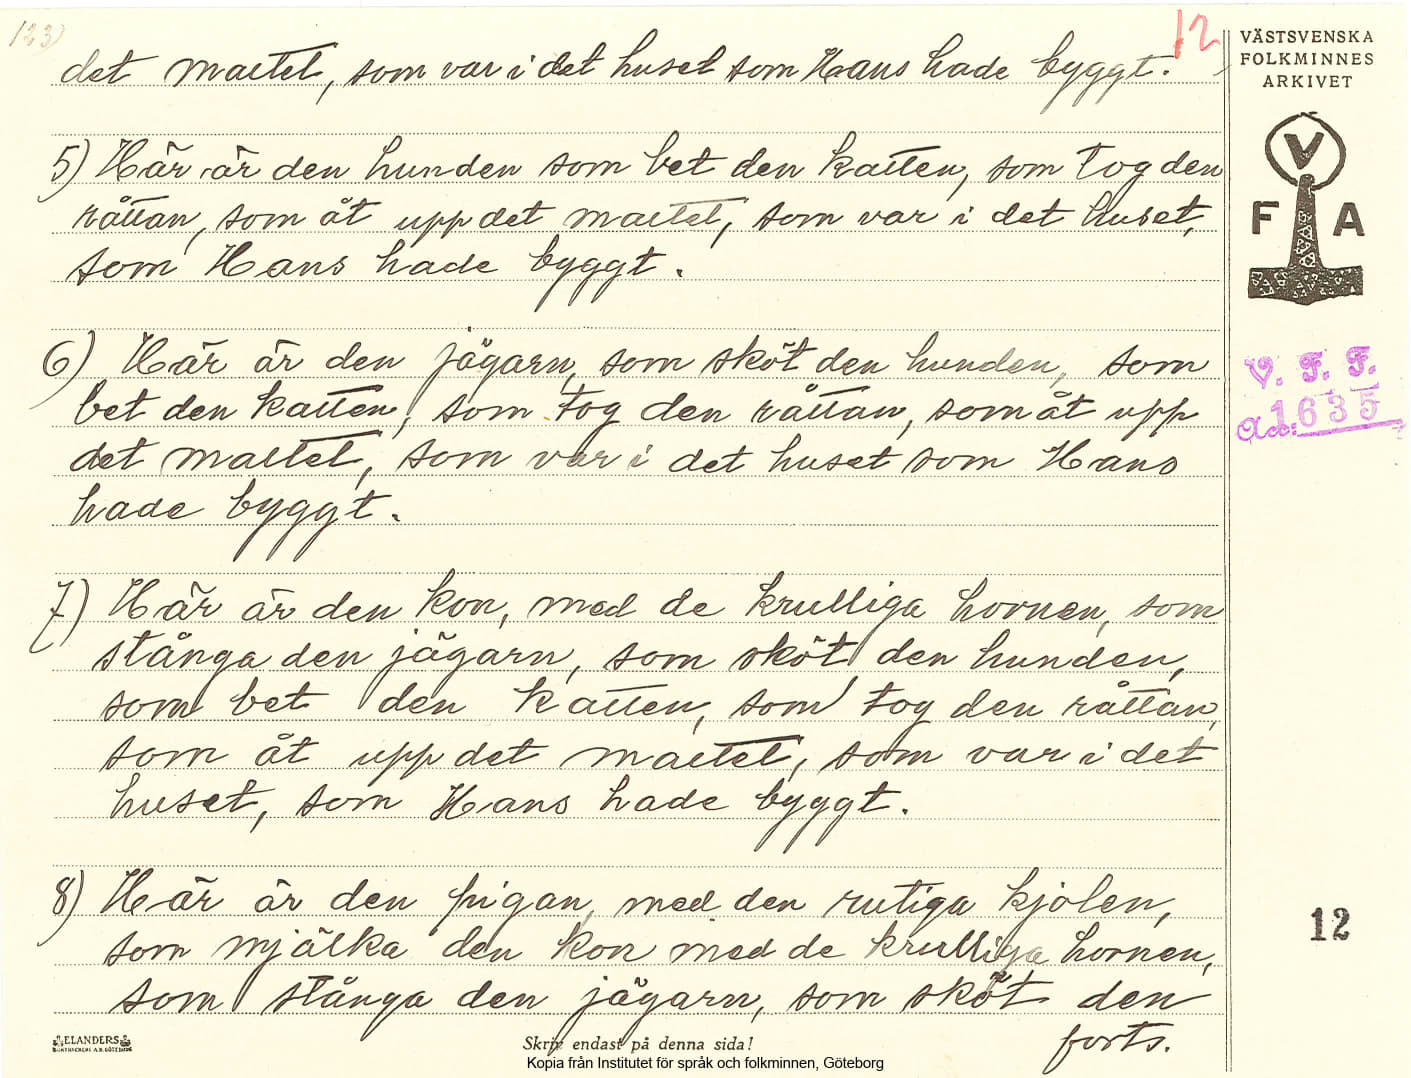 123)
12
det maltet, som var i det huset som Hans hade byggt.
5) Här är den hunden som bet den katten, som tog den
råttan, som åt upp det maltet, som var i det huset,
som Hans hade byggt.
6) Här är den jägarn, som sköt den hunden, som
bet den katten, som tog den råttan, som åt upp
det maltet, som var i det huset som Hans
hade byggt.
7) Här är den kon, med de krulliga hornen, som
stånga den jägarn, som sköt den hunden,
som bet den katten, som tog den råttan,
som åt upp det maltet, som var i det
huset, som Hans hade byggt.
8) Här är den pigan, med den rutiga kjolen,
som mjälka den kon med de krulliga hornen,
som stånga den jägarn, som sköt den
forts.
VÄSTSVENSKA
FOLKMINNES
ARKIVET
V
F A
V. F. F.
Acc: 1635
12
ELANDERS
Skriv endast på denna sida!
Kopia från Institutet för språk och folkminnen, Göteborg